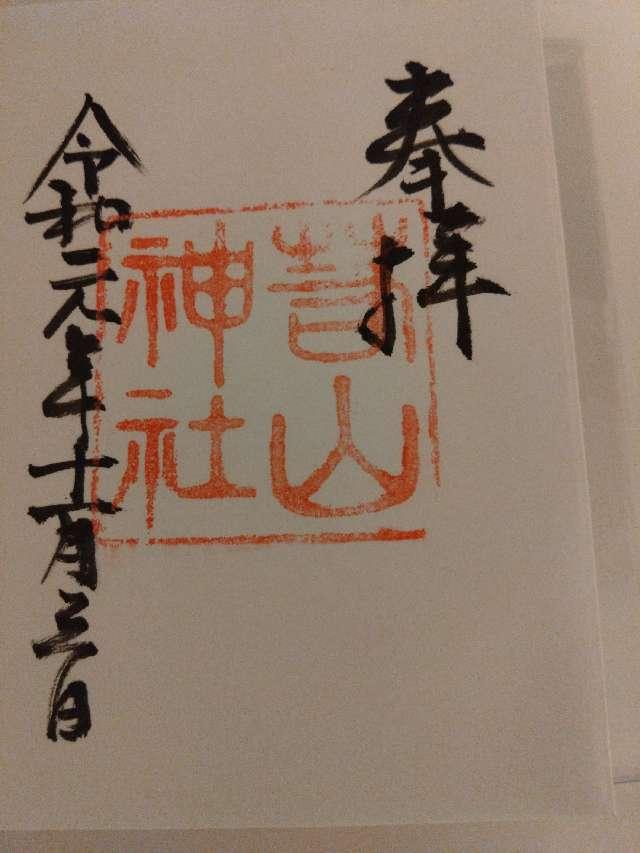 奉拝
山
神社
令和元年十一月三日